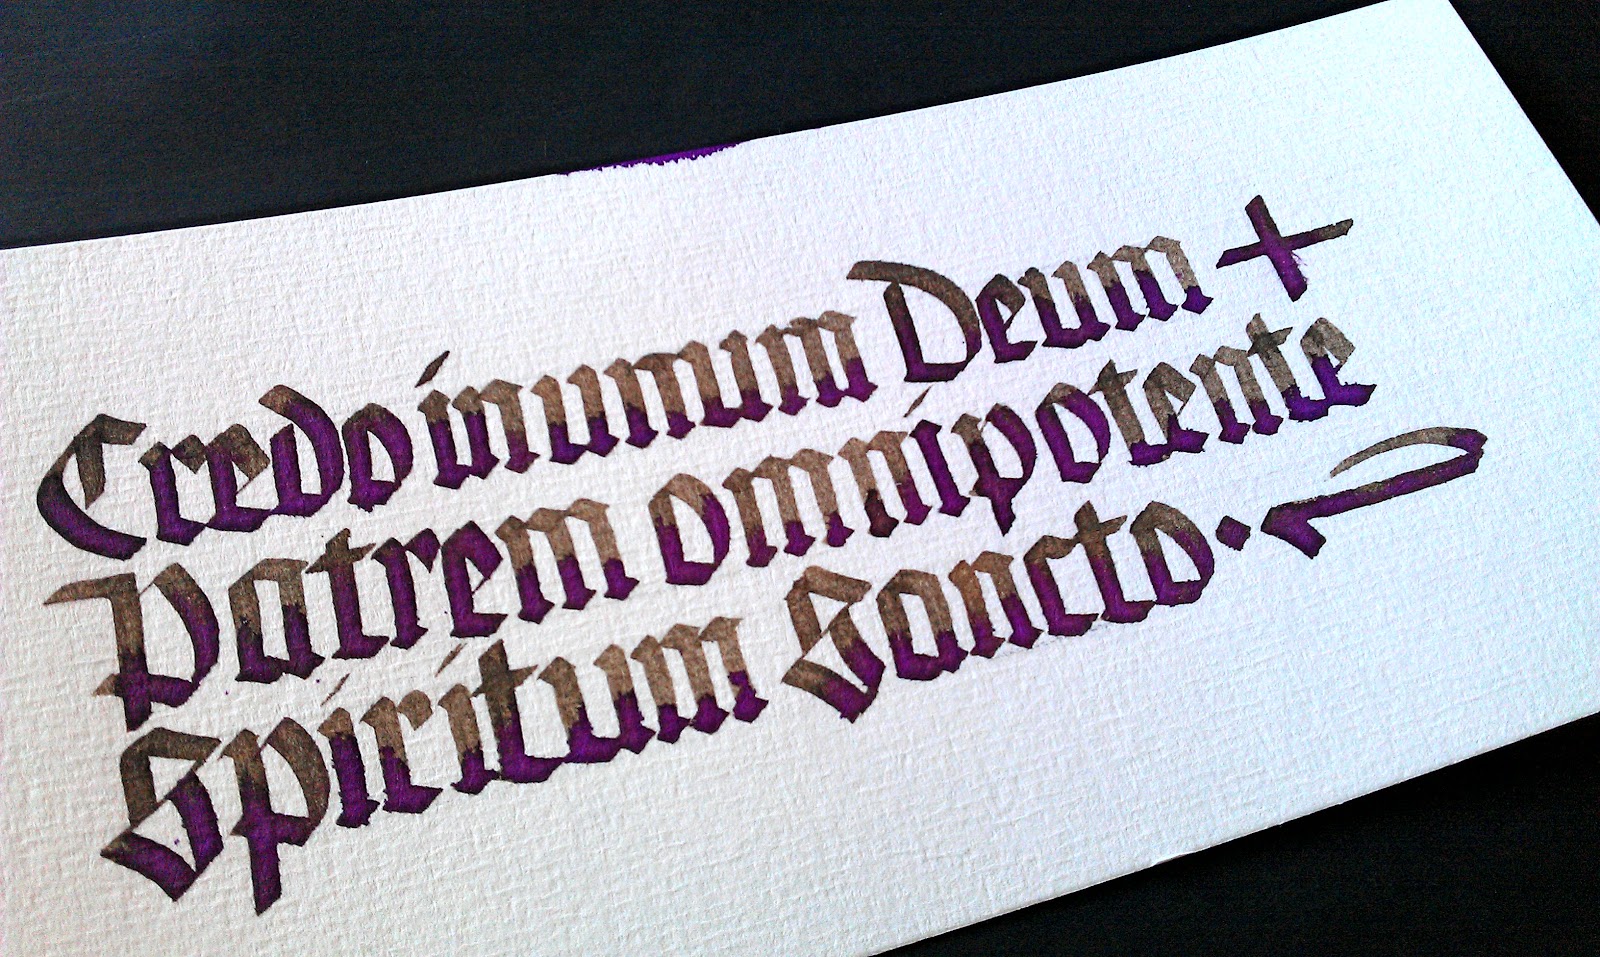 Credo in unum Deum +
Patrem omnipotente
Spiritum Sancto ·